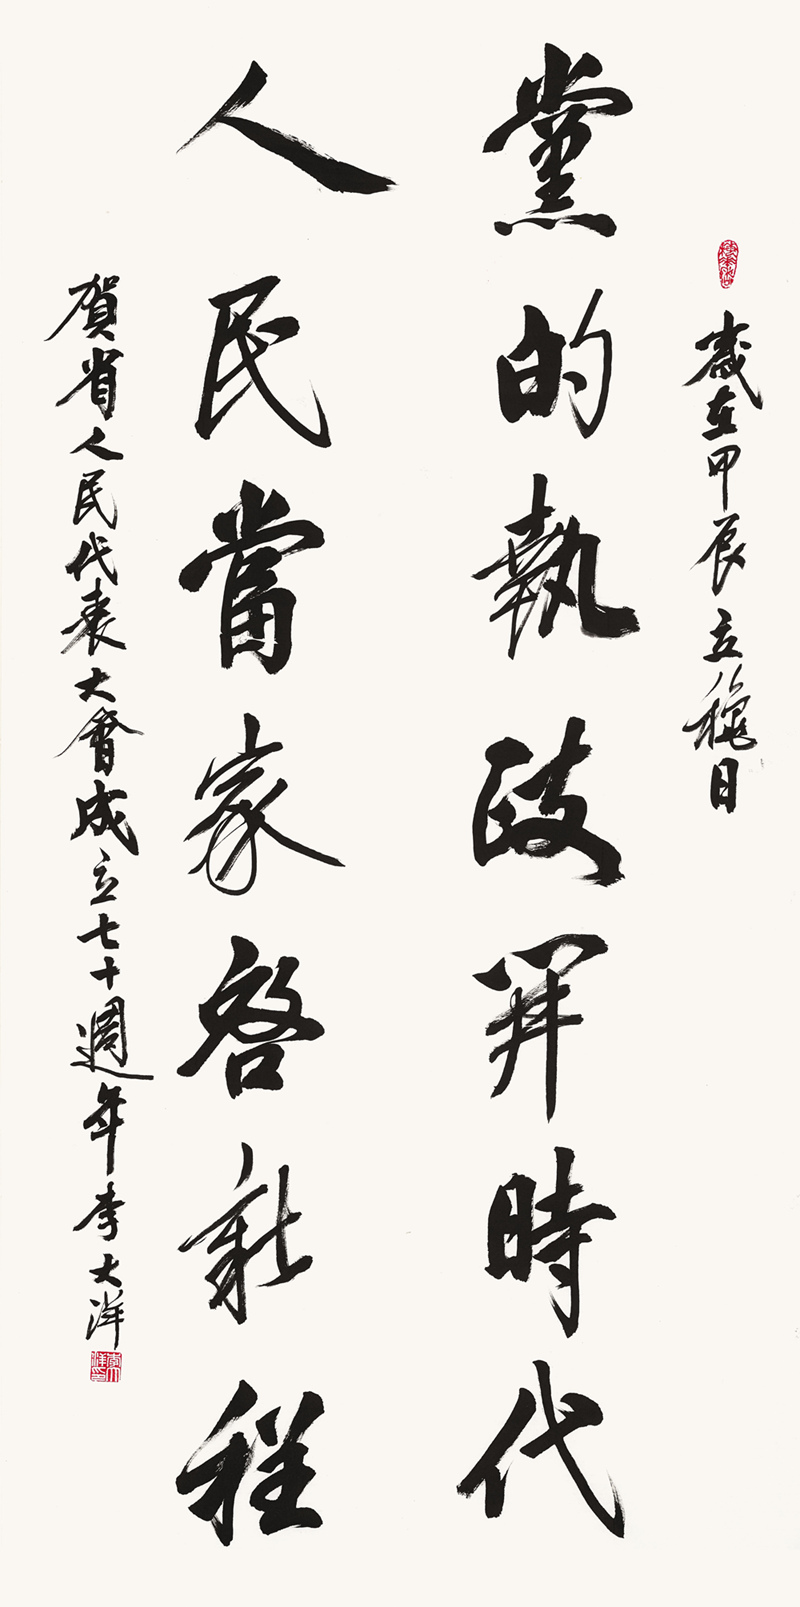 歲在甲辰立穐日
黨的執政開時代
人民當家啓新程
賀省人民代表大會成立七十週年李大洋